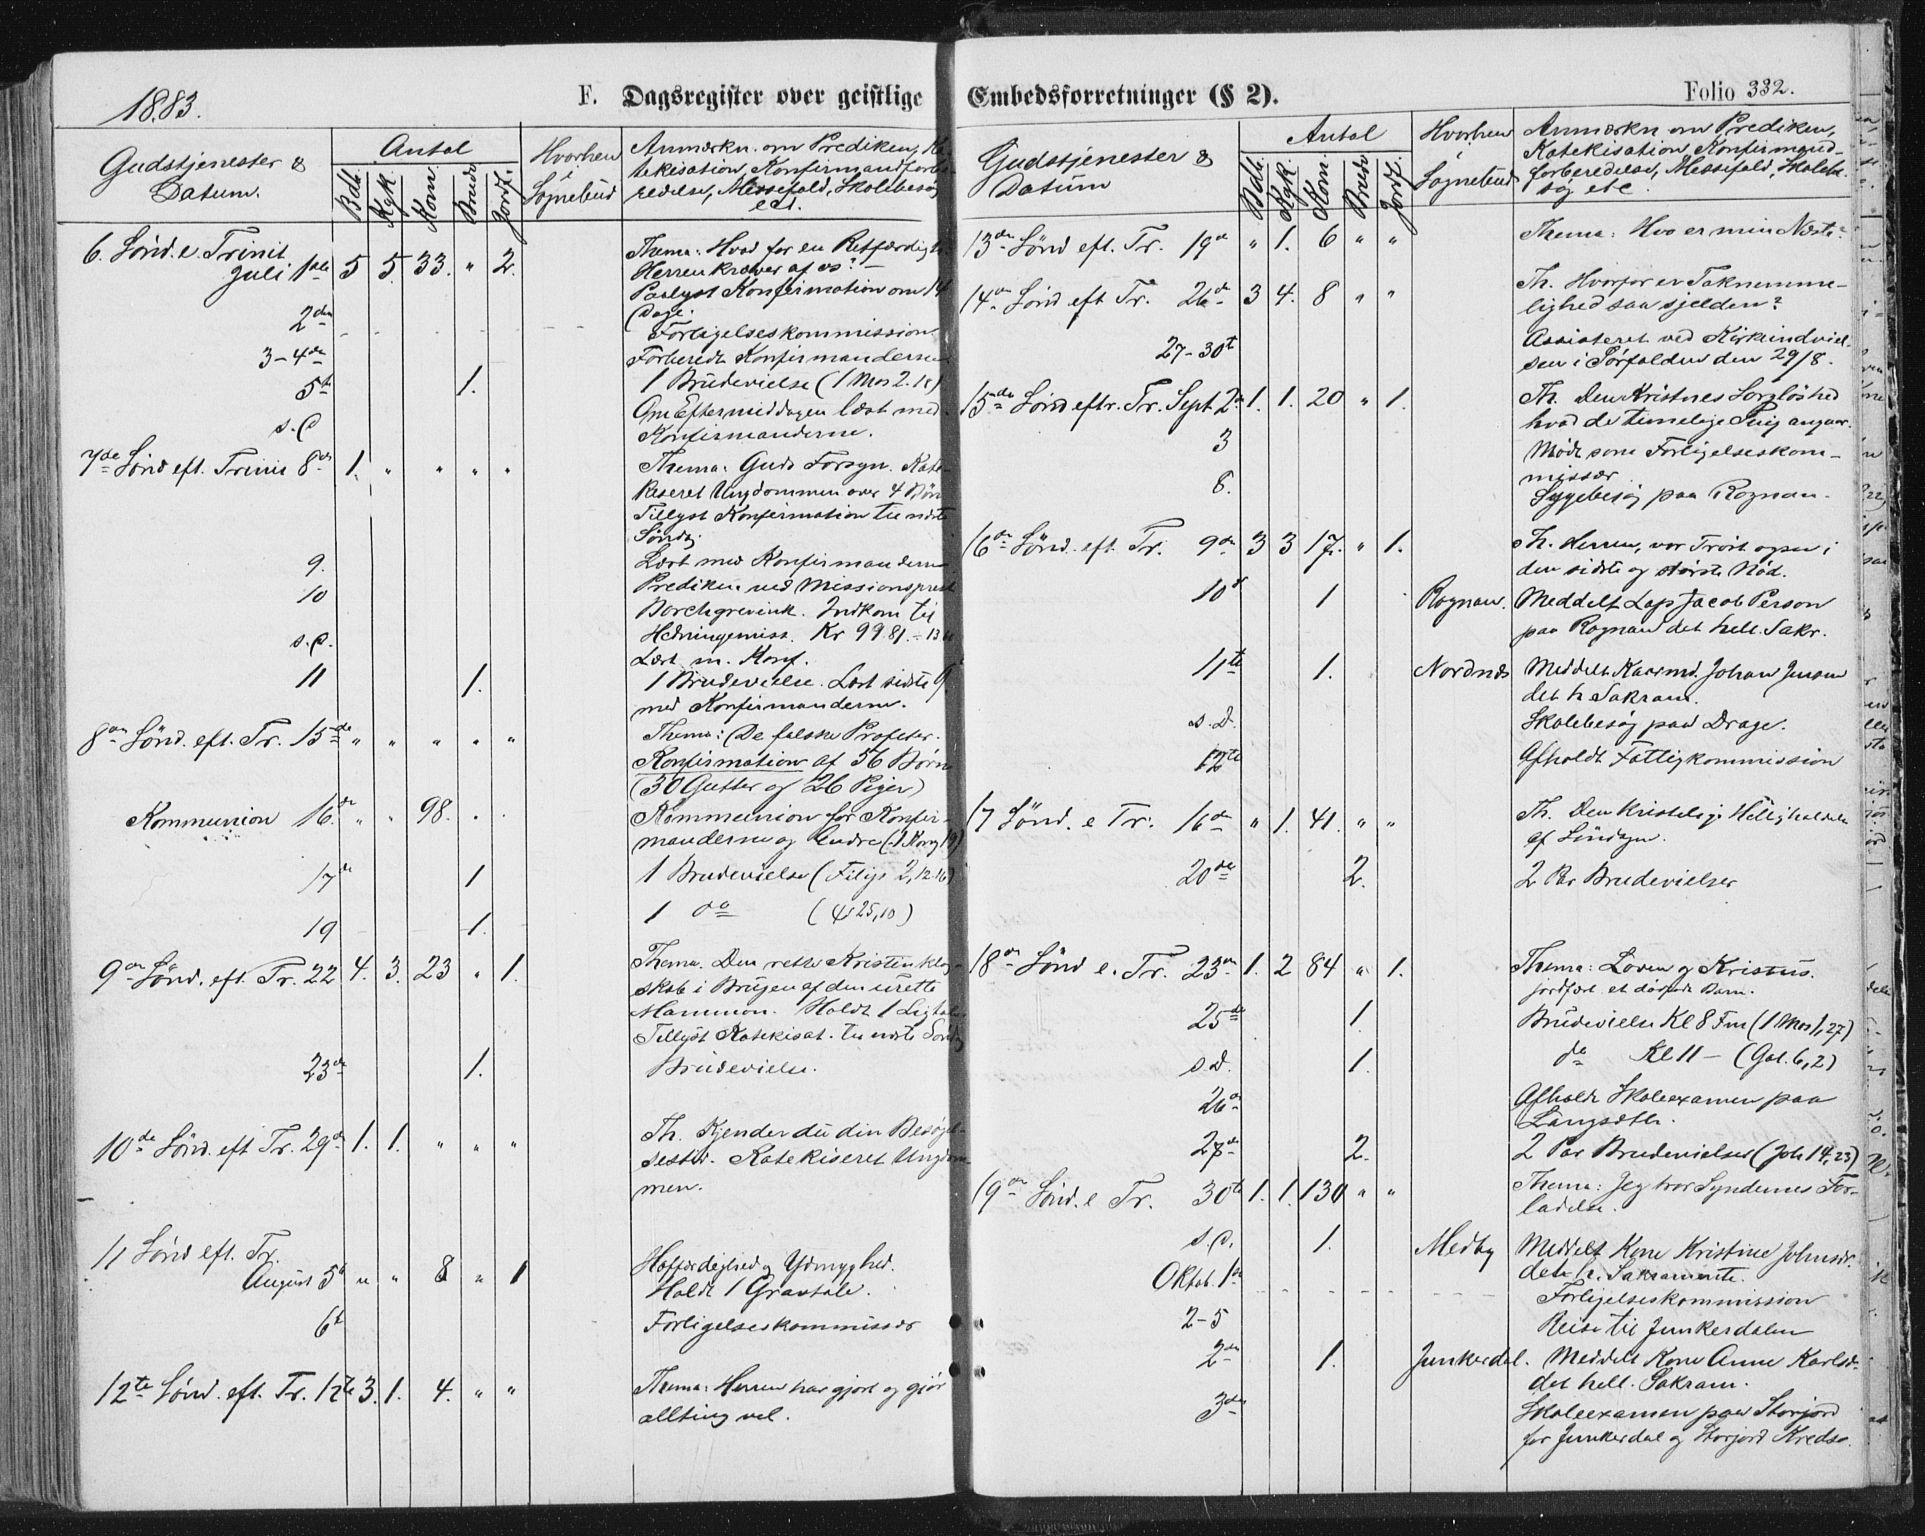 1883.
F. Dagsregister over geistlige
Gudstjenester & Datum.
Antal
Bdt. Kgk. Kom. Brudv. Jordf.
Hvorhen i Sognebud
Anmærkn. om Prediken, Ka-
tekisation, Konfirmandforbe-
redelse, Messefald, Skolebesøg
ect.
6. Sønd. e. Trinit
Juli 1ste 5 5 33. " 2. Thema: Hvad for en Retfærdigh.
Herren kræver af os? –
Paalyst Konfirmation om 14
Dage.
2den Forligelseskommission
3–4de Forberedt Konfirmanderne
5te 1. 1 Brudevielse (1 Mos 2.18)
s.D Om Eftermiddagen læst med
Konfirmanderne.
7de Sønd eft. Trinit 8de 1. " " " " Thema: Guds Forsyn. Kate-
kiseret Ungdommen over 4 Bøn
Tillyst Konfirmation til næste
Søndg.
9. Læst med Konfirmanderne
10 Prediken ved Missionsprest
Borchgrevink. Indkom til
Hedningemiss. Kr 99.81.
s.D. Læst m. Konf.
11 1. 1 Brudevielse. Læst sidste G
med Konfirmanderne.
8de Sønd. eft. Tr. 15de " " " " " Thema: De falske Profeter.
Konfirmation af 56 Børn
(30 Gutter og 26 Piger)
Kommunion 16de " " 98. . Kommunion for Konfir-
manderne og Andre
17de 1 1 Brudevielse (Filip 2,12.16)
19 1. 1 do (ψ 25,10)
9de Sønd. eft. Tr. 22 4. 3. 23 " 1. Thema. Den rette Kristenklog-
skab i Brugen af den urette
Mammon. Holdt 1 Ligtale
Tillyst Katekisat. til næste Søndag
23de 1. Brudevielse.
10de Sønd. eft Tr. 29de 1. 1. " " " Th. Kjender du din Besøgel-
sestid. Katekiseret Ungdom-
men.
11 Sønd eft. Tr.
August 5te " " 8 " 1 Hoffærdighed og Ydmyghed.
Holdt 1 Gravtale.
6te Forligelseskommissær
12te Sønd. eft. Tr. 12te 3. 1. 4. " " Thema: Herren har gjort og gjør
allting vel.
Embedsforretninger (§ 2).
Folio 332.
Gudstjenester & Datum
Antal
Bdt. Kgk. Kom. Brudv. Jordf.
Hvorhen i Sognebud
Anmærkn om Prediken,
Katekisation Konfirmand-
forberedelse, Messefald, Skolebe-
søg etc.
13de Sønd eft. Tr. 19de " 1. 6 " " Thema: Hvo er min Næste?
14de Sønd eft Tr. 26de 3 4. 8 " " Th. Hvorfor er Taknemme-
lighed saa sjelden?
27–30te Assisteret ved Kirkeindviel-
sen i Sørfolden den 29/8.
15de Sønd eftr. Tr. Sept 2den 1. 1. 20 " 1. Th. Den Kristnes Sorgløshed
hvad de timelige Ting angaar.
3 Møde som Forligelseskom-
missær.
8. Sygebesøg paa Rognan.
16de Sønd. eft. Tr. 9de 3 3 17. " 1. Th. Herren, vor Trøst ogsaa i
den sidste og største Nød.
10de 1 Rognan. Meddelt Lap Jacob Person
paa Rognan det hell. Sakr.
11te 1. Nordnes Meddelt Kaarmd. Johan Jensen
det h Sakram.
s.d. Skolebesøg paa Drage.
12te Afholdt Fattigkommission
17 Sønd. e Tr. 16de " 1. 41. " " Th. Den kristelige Helligholdelse
af Søndagen.
20de 2. 2 Par Brudevielser
18de Sønd e. Tr. 23de 1. 2 84 " 1. Thema: Loven og Kristus.
Jordfæst. et dødfødt Barn.
25de 1. Brudevielse Kl 8 Fm (1 Mos 1,27)
s.d. 1. do Kl 11 – (Gal. 6,2)
26de Afholdt Skoleexamen paa
Langsæter.
27de 2. 2 Par Brudevielser (Joh 14,23)
19de Sønd. e Tr. 30te 1. 1. 130 " " Thema: Jeg tror Syndernes For-
ladelse.
s.d. 1. Medby Meddelt Kone Kristine Johnsdr.
det h. Sakramente.
Oktob. 1ste Forligelseskommission
2–5 Reise til Junkerdalen
2den 1. Junkerdal. Meddelt Kone Anne Karlsd.
det hell. Sakram.
3die Skoleexamen paa Storjord
for Junkerdal og Storjord Kredse.